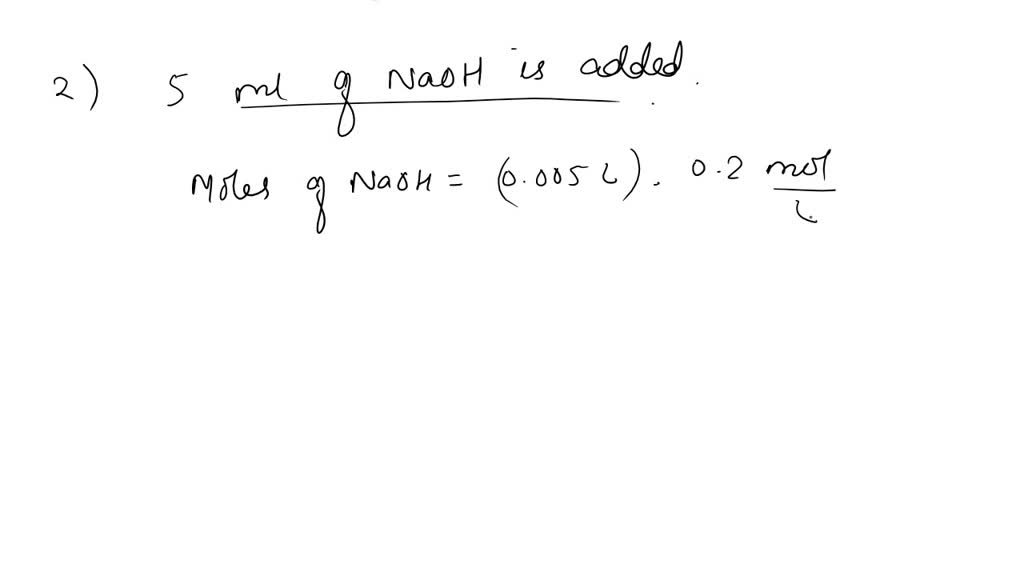 2) 5 ml of NaOH is added.
Moles of NaOH = (0.005 L). 0.2 mol
L